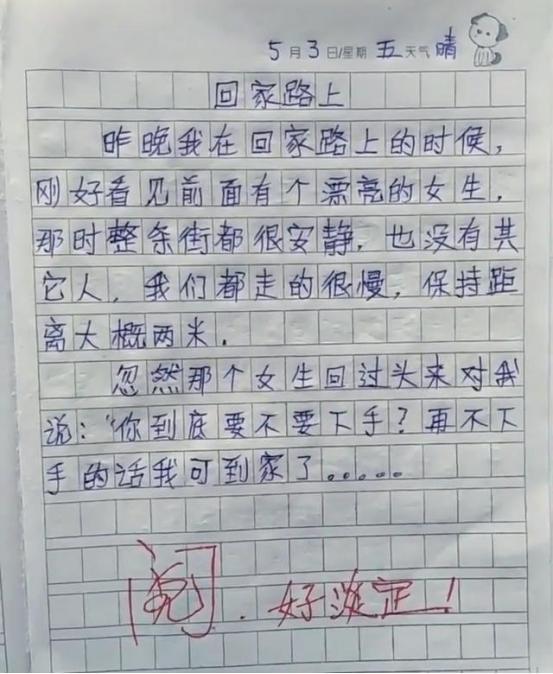 5月3日/星期 五 天气 晴
回家路上
昨晚我在回家路上的时候，
刚好看见前面有个漂亮的女生，
那时整条街都很安静，也没有其
它人，我们都走的很慢，保持距
离大概两米。
忽然那个女生回过头来对我
说：“你到底要不要下手？再不下
手的话我可到家了。。。。。
阅．好淡定！